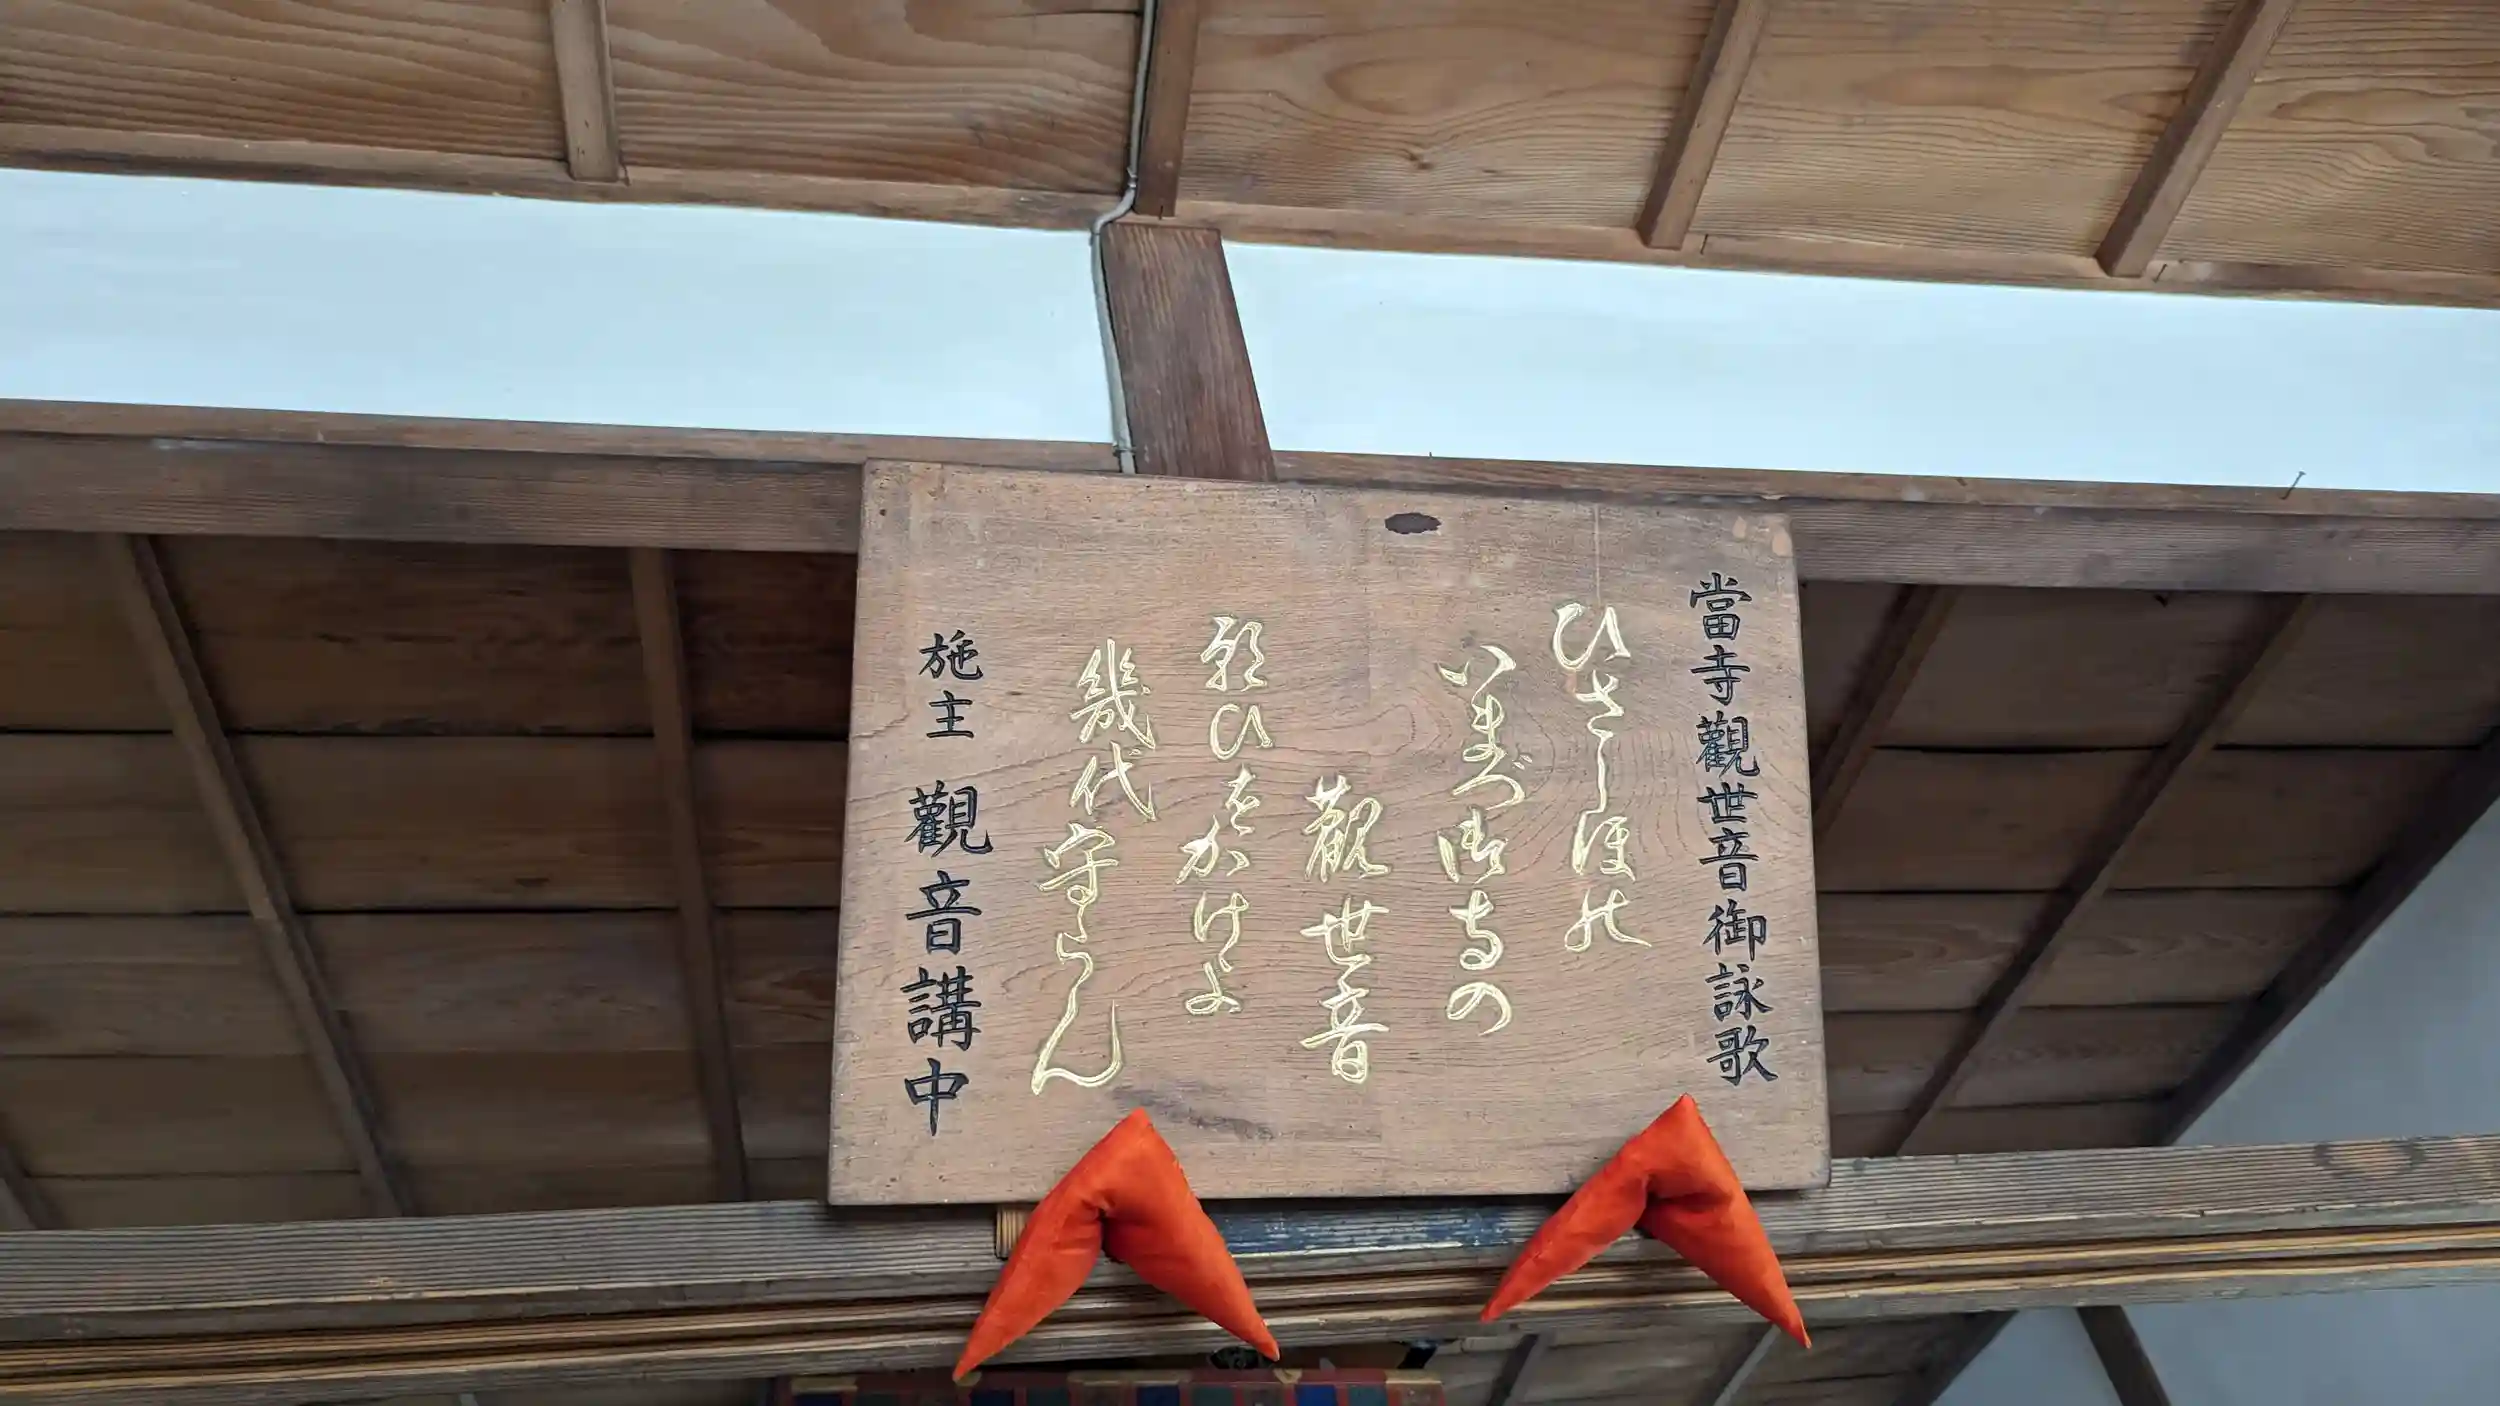 當寺觀世音御詠歌
ひさしほの
いまづ御寺の
觀世音
願ひをかけよ
幾代守らん
施主 觀音講中